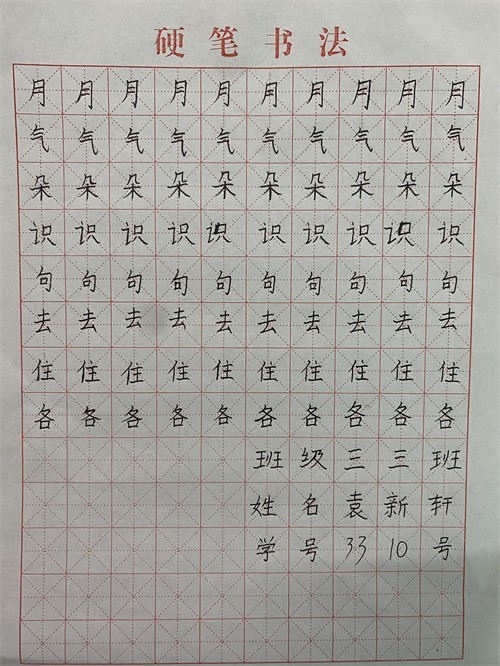 硬笔书法
月月月月月月月月月月
气气气气气气气气气气
朵朵朵朵朵朵朵朵朵朵
识识识识识识识识识识
句句句句句句句句句句
去去去去去去去去去去
住住住住住住住住住住
各各各各各各各各各各
班级三三班
姓名袁新轩
学号3310号